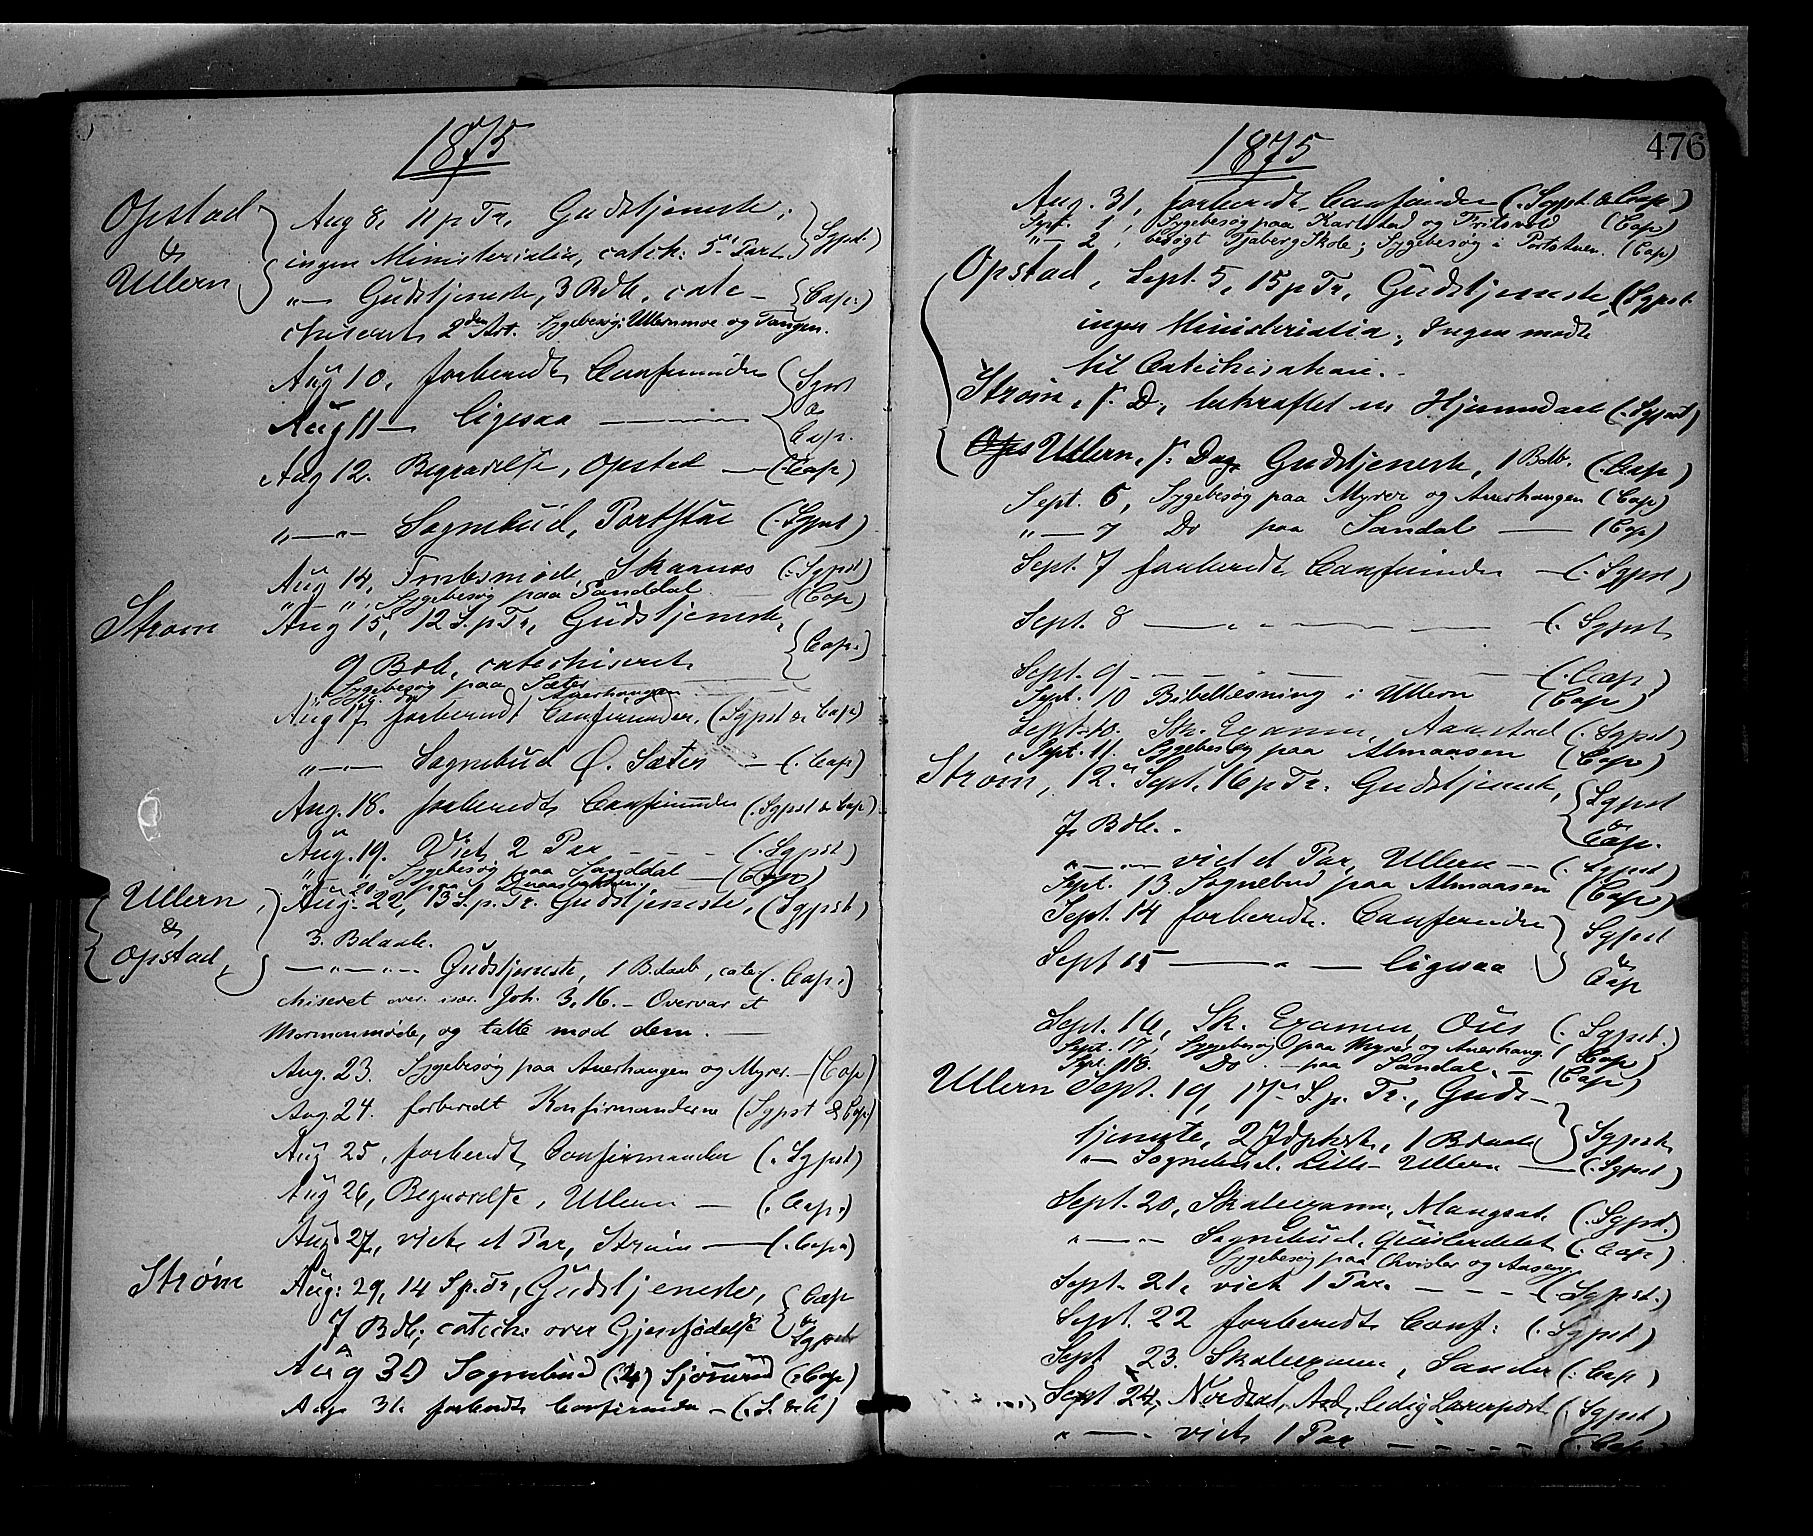 1875
Opstad & Ullern
Aug 8, 11 p Tr, Gudstjeneste;
ingen Ministerialia, catch: 5 Part (Sgpst.)
"— Gudstjeneste, 3 Bdb, cate- (Cap:)
chiseret 2den Art. Sygebesøg: Ullernmoe og Tangen.
Aug 10, forberedt Confirmander
Aug 11 — ligesaa — (Sgpst & Cap.
Aug 12. Begravelse, Opstad — (Cap)
"—"— Sognebud, Portstue (. Sgpst)
Aug 14, Skaanæs (. Sgpst)
"—", Sygebesøg paa Sanddal (Cap)
Strøm
Aug 15, 12 S. p Tr, Gudstjeneste,
9 Bdb, catechiseret (Cap.)
Sygebesøg paa Sæter
Auerhaugen
Aug 17 forberedt Confirmander, (Sgpst & Cap.)
"—"— Sognebud Ø. Sæter — (. Cap)
Aug. 18. forberedt Confirmander (. Sgpst & Cap)
Aug. 19. Viet 2 Par - - - (. Sgpst)
", Sygebesøg paa Sanddal — (Cap)
" 20 " paa
Ullern & Opstad,
Aug. 22, 13 S. p. Tr. Gudstjeneste, (Sgpst)
3. Bdaab.
—"—"— Gudstjeneste, 1 Bdaab, cate (. Cap.)
chiseret over Joh. 3, 16. — Overvar et
Mormonmøde, og talte mod dem. —
Aug. 23. Sygebesøg paa Auerhaugen og Myrer. — (Cap)
Aug. 24. forberedt Konfirmanderne (Sgpst & Cap.)
Aug 25, forberedt Confirmander (. Sgpst)
Aug 26, Begravelse, Ullern — (. Cap.)
Aug 27, viet et Par, Strøm — (. Cap.)
Strøm
Aug: 29, 14 S p. Tr, Gudstjeneste,
7 Bdb; catech: over Gjenfødelse (Cap & Sgpst
Aug 30 Sognebud (.4) Sjørud (. Cap)
Aug 31. forberedt Confirmander — (. S. & C)
1875
476
Aug. 31, forberedt Confirmander (. Sgpst & Cap)
Sept. 1, Sygebesøg paa Karlstad og Fritsvold (Cap)
"— 2, besøgt Tjaberg Skole; Sygebesøg i Portstuen. (Cap)
Opstad, Sept. 5, 15 p Tr, Gudstjeneste, (Sgpst.
ingen Ministerialia; Ingen mødte
til Catechisation. -
Strøm, s. D, bekræftet en Hjemmedaab (. Sgpst)
Ops Ullern, s. Dag Gudstjeneste, 1 Bdb. (. Cap)
Sept. 6, Sygebesøg paa Myrer og Auerhaugen (Cap)
"— 7 Do paa Sandal — (Cap)
Sept. 7 forberedt Confirmander — (. Sgpst)
Sept. 8 — " — (. Sgpst
Sept. 9 — (. Cap)
Sept. 10 Bibellæsning i Ullern (Cap)
Sept. 10. Sk. Examen, Aanstad (. Sgpst)
Sept. 11. Sygebesøg paa Almaasen (Cap)
Strøm, 12. Sept. 16 p Tr. Gudstjeneste,
7 Bdb. (Sgpst & Cap.
"—"— viet et Par, Ullern — (. Sgpst)
Sept. 13. Sognebud paa Almaasen (Cap)
Sept. 14 forberedt. Confirmander
Sept 15 — " — ligesaa (Sgpst & Cap
Sept. 16, Sk. Examen, Ous (. Sgpst.)
Sept. 17, Sygebesøg paa Myrer og Auerhaug. (Cap)
Sept. 18. Do. — paa Sandal. — (Cap)
Ullern Sept. 19, 17 S. p. Tr., Guds-
tjeneste, 2 Idøbte, 1 Bdaab (Sgpst
"— Sognebud. Lille-Ullern — (. Sgpst)
Sept. 20, Skoleexamen, Mangset (. Sgpst.)
"—"— Sognebud, (. Cap)
Sygebesøg paa Qvisler og Aaseng
Sept. 21, viet 1 Par. - - - - (Sgpst.)
Sept. 22 forberedt Conf: (. Sgpst)
Sept 23. Skoleexamen, Sander (. Cap)
Sept 24, Nordset, ledig Lærerpost (. Sgpst)
"—"— viet 1 Par - - - - (. Cap